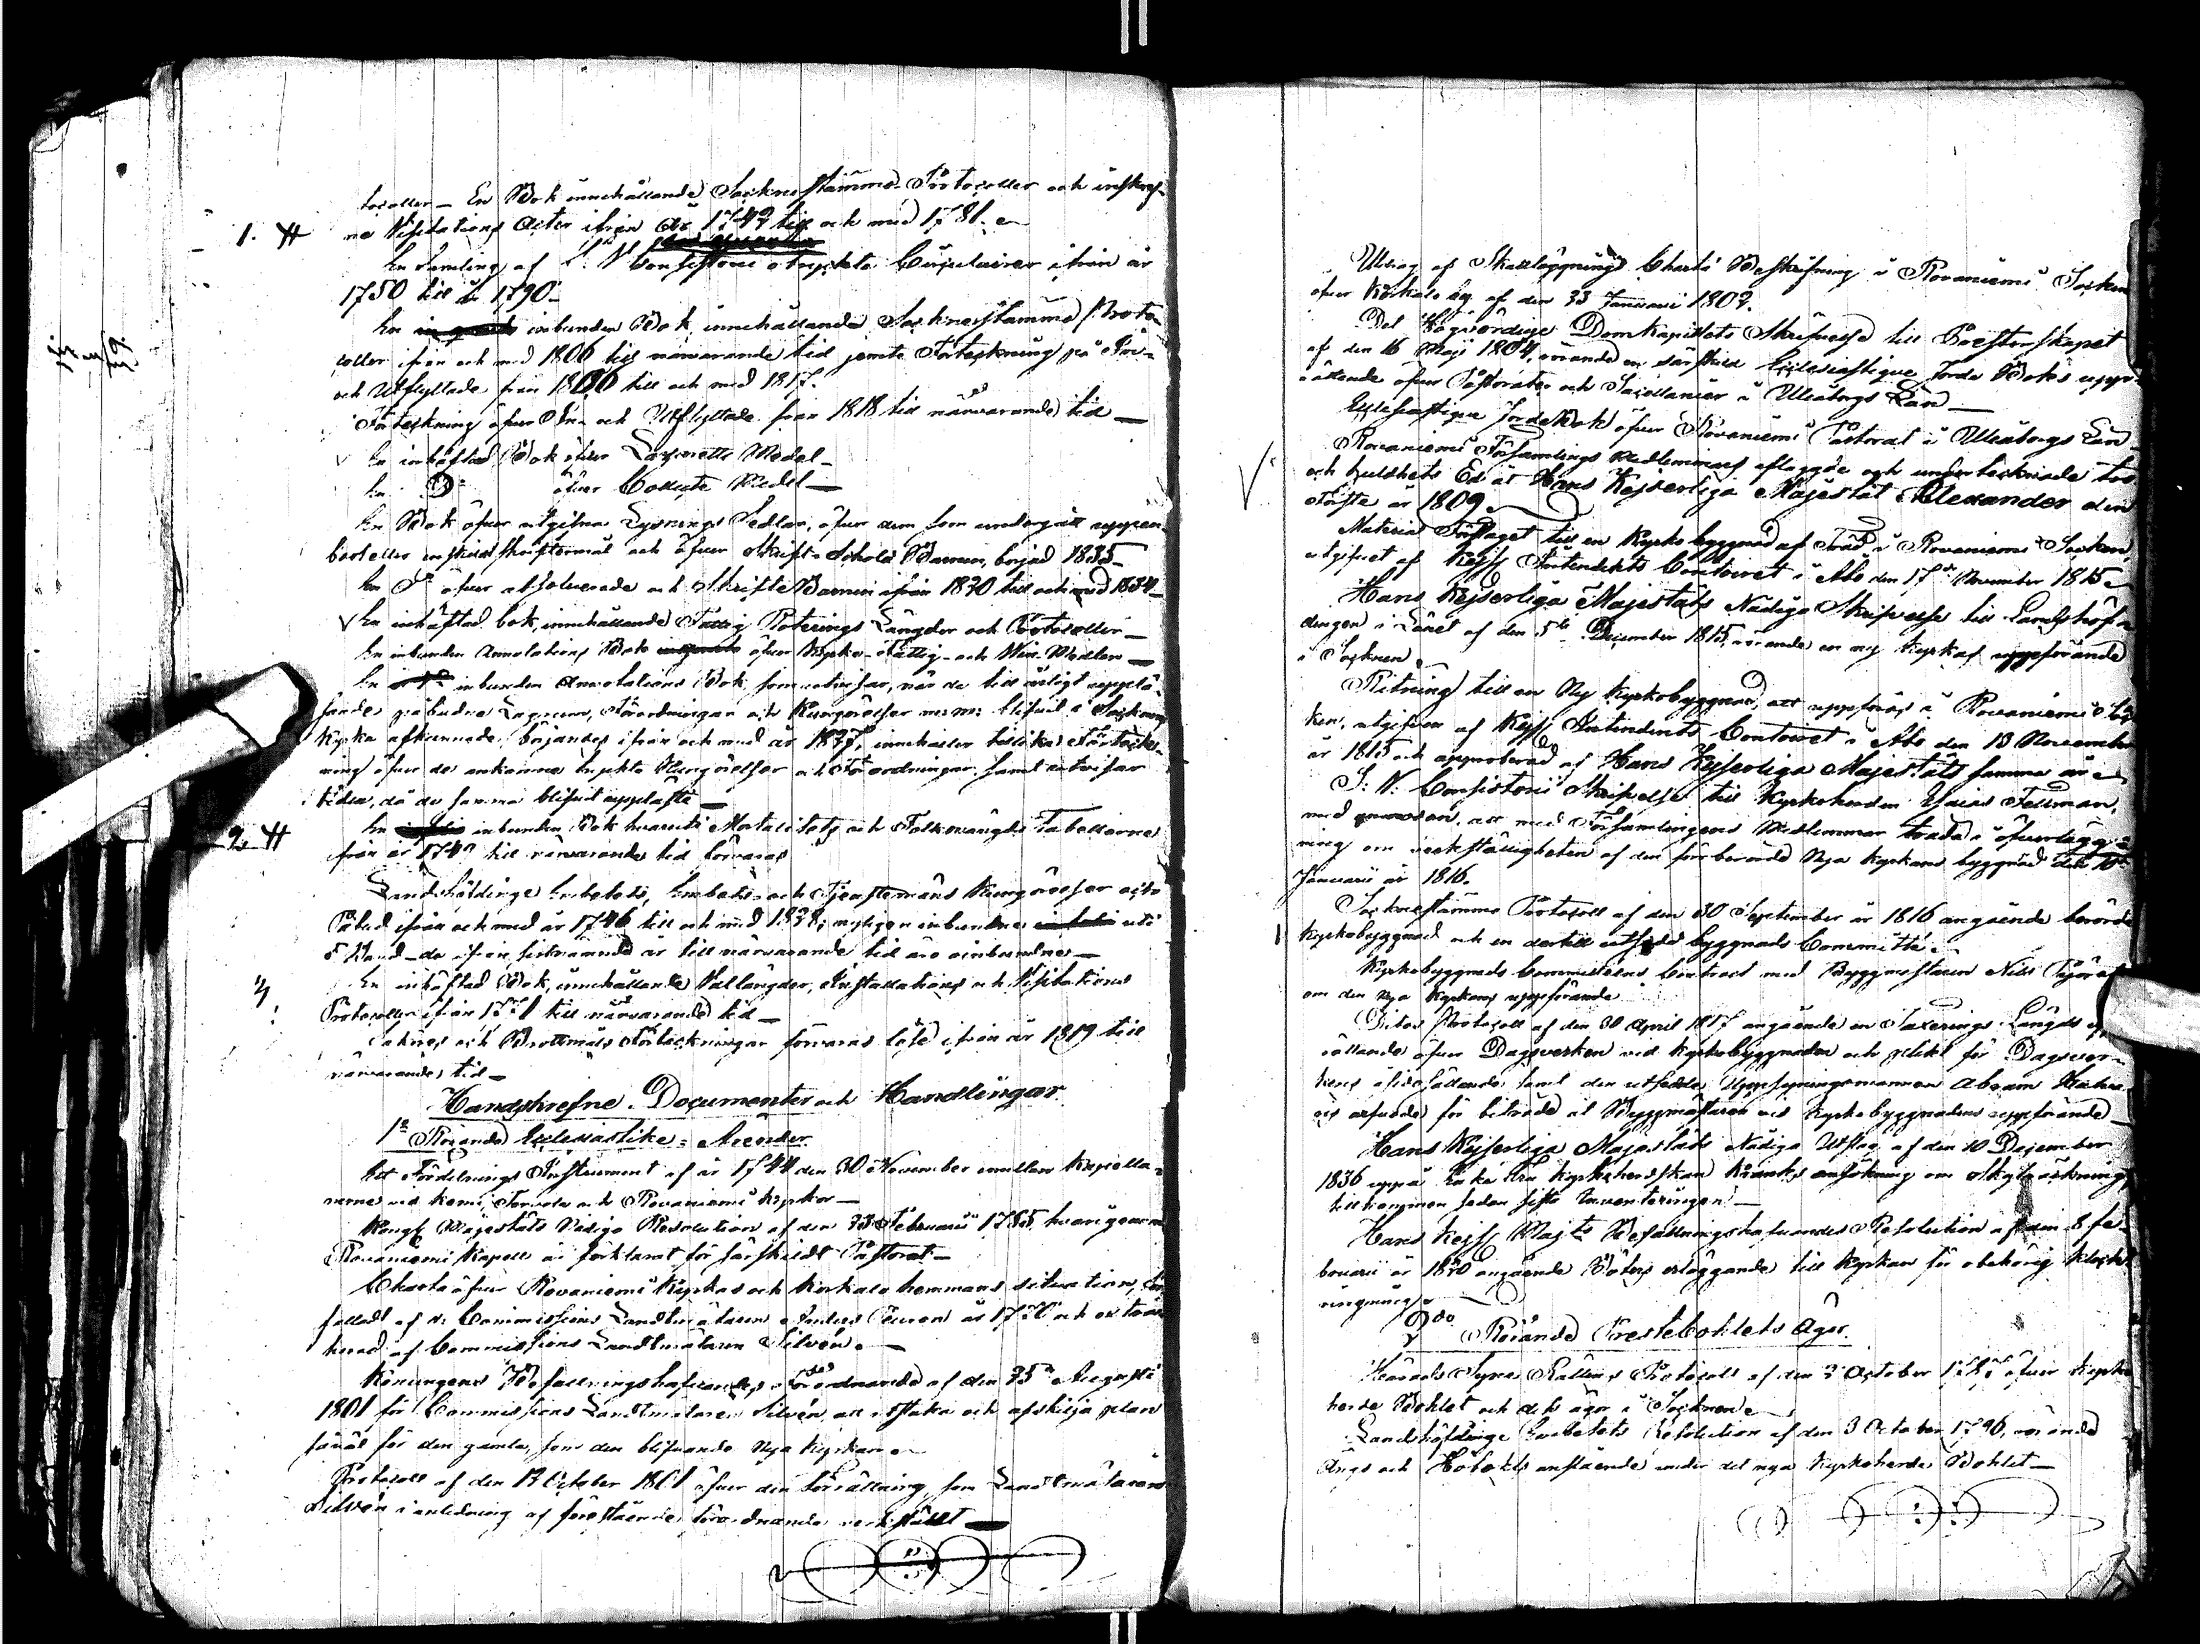 tocoller – En Bok innehållande Sockne Stämmo-Protocoller och inskref-
1. # ne Visitations Acter ifrån år 1749 till och med 1781.
En Samling af S: V Consistorii otryckta Circulairer ifrån år
1750 till år 1790
En inbunden Bok innehållande Sockne Stämmo Proto-
coller ifrån och med 1806 till närvarande tid jemte Förteckning på In-
och Utflyttade från 1806 till och med 1817.
Förteckning öfver In- och Utflyttade från 1818 till närvarande tid
En inhäftad Bok öfver Lazaretts Medel
En D:o öfver Collecte Medel
En Bok öfver utgifna Lysnings Sedlar, öfver dem som undergått uppen-
bart eller enskildt skriftermål och öfver Skrift-Schola Barnen, börjad 1835
En D:o öfver absolverade och Skrifte Barnen ifrån 1830 till och med 1834
En inhäftad bok, innehållande Fattig Roterings Längder och Protocoller
En inbunden Annotations Bok öfver Kyrko-Fattig-och Win-Medlen
En inbunden Annotations Bok som utvisar, när de till årligt upplä-
sande påbudne Lagrum, Förordningar och Kungörelser m: m: blifvit i Socknens
Kyrka afkunnade, börjandes ifrån och med år 1837, innehåller tillika Förteck-
ning öfver de ankomne tryckta Kungörelser och Förordningar samt utvisar
tiden, då de samma blifvit upplästa
2. # En inbunden Bok hvaruti Mortalitets och Folkmängds Tabellerne
ifrån år 1749 till närvarande tid förvaras
Landshöfdinge Embetets, Embets- och Tjenstemäns Kungörelser och
Påbud ifrån och med år 1746 till och med 1838, inbundne uti
5 Band – de ifrån sistnämnde år till närvarande tid äro oinbundne
En inhäftad Bok, innehållande Vallängder, Installations och Visitations
Protocoller ifrån 1771 till närvarande tid
Saknes och Brottmåls Förteckningar förvaras löse ifrån år 1819 till
närvarande tid
Handskrefne Documenter och Handlingar
1:o Rörande Ecclesiastike Ärender
Ett Fördelnings Instrument af år 1744 den 30 November emellan Kapella-
nerne vid Kemi, Tervola och Rovaniemi Kyrkor
Kongl Majestäts Nådiga Resolution af den 23 Februarii 1785, hvarigenom
Rovaniemi Kapell är förklarat för särskildt Pastorat
Charta öfver Rovaniemi Kyrkas och Korkalo hemmans situation, för-
fattad af v: Commissions Landtmätaren år 1770 och extra-
herad af Commissions Landtmätaren Silvén
Konungens Befallningshafvandes Förordnande af den 25 Augusti
1801 för Commissions Landtmätaren Silvén att utstaka och afskilja plan
såväl för den gamla, som den blifvande Nya Kyrkan
Protocoll af den 13 October 1801 öfver den förrättning, som Landtmätaren
Silvén i anledning af förestående förordnande verkställt
Utdrag af Skattläggnings Charta Beskrifning i Rovaniemi Socken
öfver Korkalo by af den 23 Januarii 1802.
Det Högvördige Domkapitlets Skrifvelse till Presterskapet
af den 16 Maji 1804, rörande en särskild Ecclesiastique Jorde Boks uppr-
ättande öfver Pastorater och Sacellanier i Uleåborgs Län
Ecclesiastique Jordebok öfver Rovaniemi Pastorat i Uleåborgs Län
Rovaniemi Församlings Medlemmars aflagde och undertecknade tro
och huldhets Ed åt Hans Kejserliga Majestät Alexander den
Första år 1809
Material Förslaget till en Kyrko byggnad af Träd i Rovaniemi Socken,
utgifvet af Kejs Intendents Contoiret i Åbo den 17 November 1815
Hans Kejserliga Majestäts Nådiga Skrifvelse till Landshöf-
dingen i Länet af den 5 December 1815, rörande en ny Kyrkas uppförande
i Socknen
Ritning till en Ny Kyrkobyggnad, att uppföras i Rovaniemi Soc-
ken, utgifven af Kejs Intendents Contoiret i Åbo den 13 November
år 1815 och approberad af Hans Kejserliga Majestät samma år
S: V: Consistorii Skrifvelse till Kyrkoherden Esaias Fellman,
med att med Församlingens Medlemmar träda i öfverlägg-
ning om verkställigheten af den förberörde Nya Kyrkans byggnad den 10
Januarii år 1816.
Sockne Stämmo Protocoll af den 30 September år 1816 angående berörde
Kyrkobyggnad och en dertill utsedd byggnads Committé
Kyrkobyggnads Committéens Contract med Byggmästaren
om den Nya Kyrkans uppförande
Ditos Protocoll af den 30 April 1817 angående en Taxerings Längds upp-
rättande öfver Dagsverken vid Kyrkobyggnaden och plikt för Dagsver-
kens åsidosättande samt den utsedde Uppsyningsmannen Abram
arfvode för biträde åt Byggmästaren vid Kyrkobyggnadens uppförande
Hans Kejserliga Majestäts Nådiga Utslag af den 10 December
1836 uppå Enke Fru Kyrkoherdskan ansökning om
tillkommen sedan sista Inventeringen
Hans Kejs Maj:ts Befallningshafvandes Resolution af den 8 Fe-
bruarii år 1820 angående Böters erläggande till Kyrkan för obehörig Klock-
ringning
2:do Rörande Prestebohlets Ägor
Härads Syne Rättens Protocoll af den 2 October öfver Kyrko-
herde Bohlet och dess ägor i Socknen
Landshöfdinge Embetets Resolution af den 3 October 1796, rörande
Ängs och anslående under det nya Kyrkoherde Bohlet